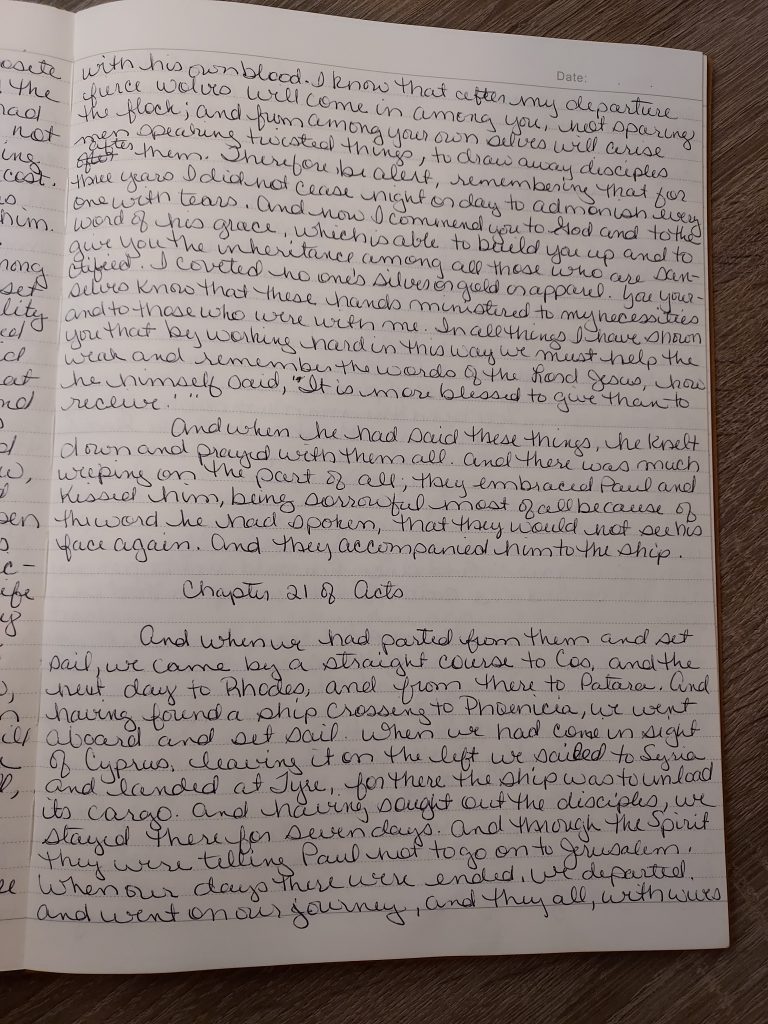 Date:
with his own blood. I know that after my departure
fierce wolves will come in among you, not sparing
the flock; and from among your own selves will arise
men speaking twisted things, to draw away disciples
after them. Therefore be alert, remembering that for
three years I did not cease night or day to admonish every
one with tears. And now I commend you to God and to the
word of his grace, which is able to build you up and to
give you the inheritance among all those who are san-
ctified. I coveted no one's silver or gold or apparel. You your-
selves know that these hands ministered to my necessities
and to those who were with me. In all things I have shown
you that by working hard in this way we must help the
weak and remember the words of the Lord Jesus, how
he himself said, "It is more blessed to give than to
receive.'"
And when he had said these things, he knelt
down and prayed with them all. And there was much
weeping on the part of all; they embraced Paul and
kissed him, being sorrowful most of all because of
the word he had spoken, that they would not see his
face again. And they accompanied him to the ship.
Chapter 21 of Acts
And when we had parted from them and set
sail, we came by a straight course to Cos, and the
next day to Rhodes, and from there to Patara. And
having found a ship crossing to Phoenicia, we went
aboard and set sail. When we had come in sight
of Cyprus, leaving it on the left we sailed to Syria
and landed at Tyre, for there the ship was to unload
its cargo. And having sought out the disciples, we
stayed there for seven days. And through the Spirit
they were telling Paul not to go on to Jerusalem.
When our days there were ended, we departed
and went on our journey, and they all, with wives